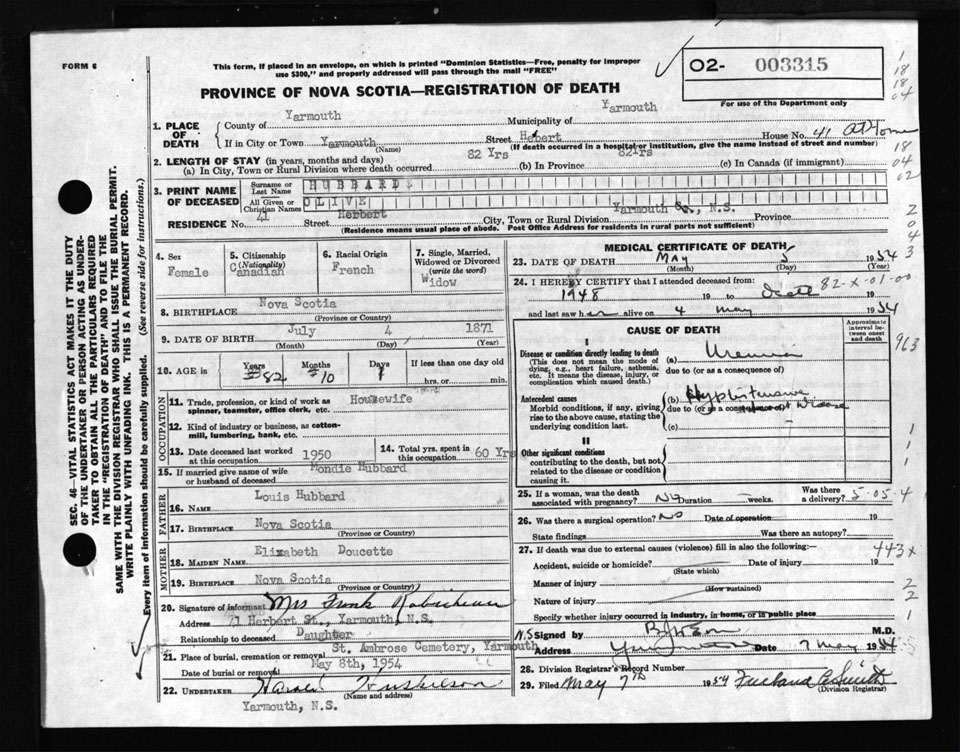 FORM 6
This form, if placed in an envelope, on which is printed "Dominion Statistics—Free, penalty for improper
use $300," and properly addressed will pass through the mail "FREE"
O2- 003315
For use of the Department only
PROVINCE OF NOVA SCOTIA—REGISTRATION OF DEATH
1. PLACE OF DEATH
County of Yarmouth Municipality of Yarmouth
If in City or Town Yarmouth (Name) Street Hebert House No. 41 At Home
(If death occurred in a hospital or institution, give the name instead of street and number)
2. LENGTH OF STAY (in years, months and days)
(a) In City, Town or Rural Division where death occurred 82 Yrs (b) In Province 82Yrs (c) In Canada (if immigrant)
3. PRINT NAME OF DECEASED
Surname or Last Name HUBBARD
All Given or Christian Names OLIVE
RESIDENCE No. 41 Street Herbert City, Town or Rural Division Yarmouth, N.S. Province
(Residence means usual place of abode. Post Office Address for residents in rural parts not sufficient)
4. Sex Female
5. Citizenship (Nationality) Canadian
6. Racial Origin French
7. Single, Married, Widowed or Divorced (write the word) Widow
8. BIRTHPLACE Nova Scotia
(Province or Country)
9. DATE OF BIRTH July 4 1871
(Month) (Day) (Year)
10. AGE in Years 82 Months 10 Days 1 If less than one day old
hrs. or min.
OCCUPATION
11. Trade, profession, or kind of work as spinner, teamster, office clerk, etc. Housewife
12. Kind of industry or business, as cotton-mill, lumbering, bank, etc.
13. Date deceased last worked at this occupation 1950
14. Total yrs. spent in this occupation 60 Yrs
15. If married give name of wife or husband of deceased Mondie Hubbard
FATHER
16. NAME Louis Hubbard
17. BIRTHPLACE Nova Scotia
MOTHER
18. MAIDEN NAME Elizabeth Doucette
19. BIRTHPLACE Nova Scotia
(Province or Country)
20. Signature of informant Mrs Frank Robicheau
Address 71 Herbert St., Yarmouth, N.S.
Relationship to deceased Daughter
21. Place of burial, cremation or removal St. Ambrose Cemetery, Yarmouth N.S
Date of burial or removal May 8th, 1954
22. UNDERTAKER Huskilson
(Name and address)
Yarmouth, N.S.
MEDICAL CERTIFICATE OF DEATH
23. DATE OF DEATH May 5 1954
(Month) (Day) (Year)
24. I HEREBY CERTIFY that I attended deceased from:
1948 19 to death 82-X-01-00
and last saw her alive on 4 May 1954
CAUSE OF DEATH
Approximate interval between onset and death
I
Disease or condition directly leading to death
(This does not mean the mode of dying, e.g., heart failure, asthenia, etc. It means the disease, injury, or complication which caused death.)
(a) Uremia
due to (or as a consequence of)
Antecedent causes
Morbid conditions, if any, giving rise to the above cause, stating the underlying condition last.
(b) Hypertensive
due to (or as a consequence of)
(c)
II
Other significant conditions
contributing to the death, but not related to the disease or condition causing it.
25. If a woman, was the death associated with pregnancy? No Duration weeks. Was there a delivery? 5-05-4
26. Was there a surgical operation? No Date of operation 19
State findings Was there an autopsy?
27. If death was due to external causes (violence) fill in also the following:—
443x
Accident, suicide or homicide? Date of injury 19
(State which)
Manner of injury
(How sustained)
Nature of injury
Specify whether injury occurred in industry, in home, or in public place
Signed by M.D.
Address Yarmouth Date 7 May 1954
28. Division Registrar's Record Number
29. Filed May 7th 1954 Smith
(Division Registrar)
SEC. 46—VITAL STATISTICS ACT MAKES IT THE DUTY
OF THE UNDERTAKER OR PERSON ACTING AS UNDER-
TAKER TO OBTAIN ALL THE PARTICULARS REQUIRED
IN THE "REGISTRATION OF DEATH" AND TO FILE THE
SAME WITH THE DIVISION REGISTRAR WHO SHALL ISSUE THE BURIAL PERMIT.
WRITE PLAINLY WITH UNFADING INK. THIS IS A PERMANENT RECORD.
Every item of information should be carefully supplied. (See reverse side for instructions.)
1
18
18
04
18
04
02
2
0
4
3
963
1
1
1
1
2
2
1